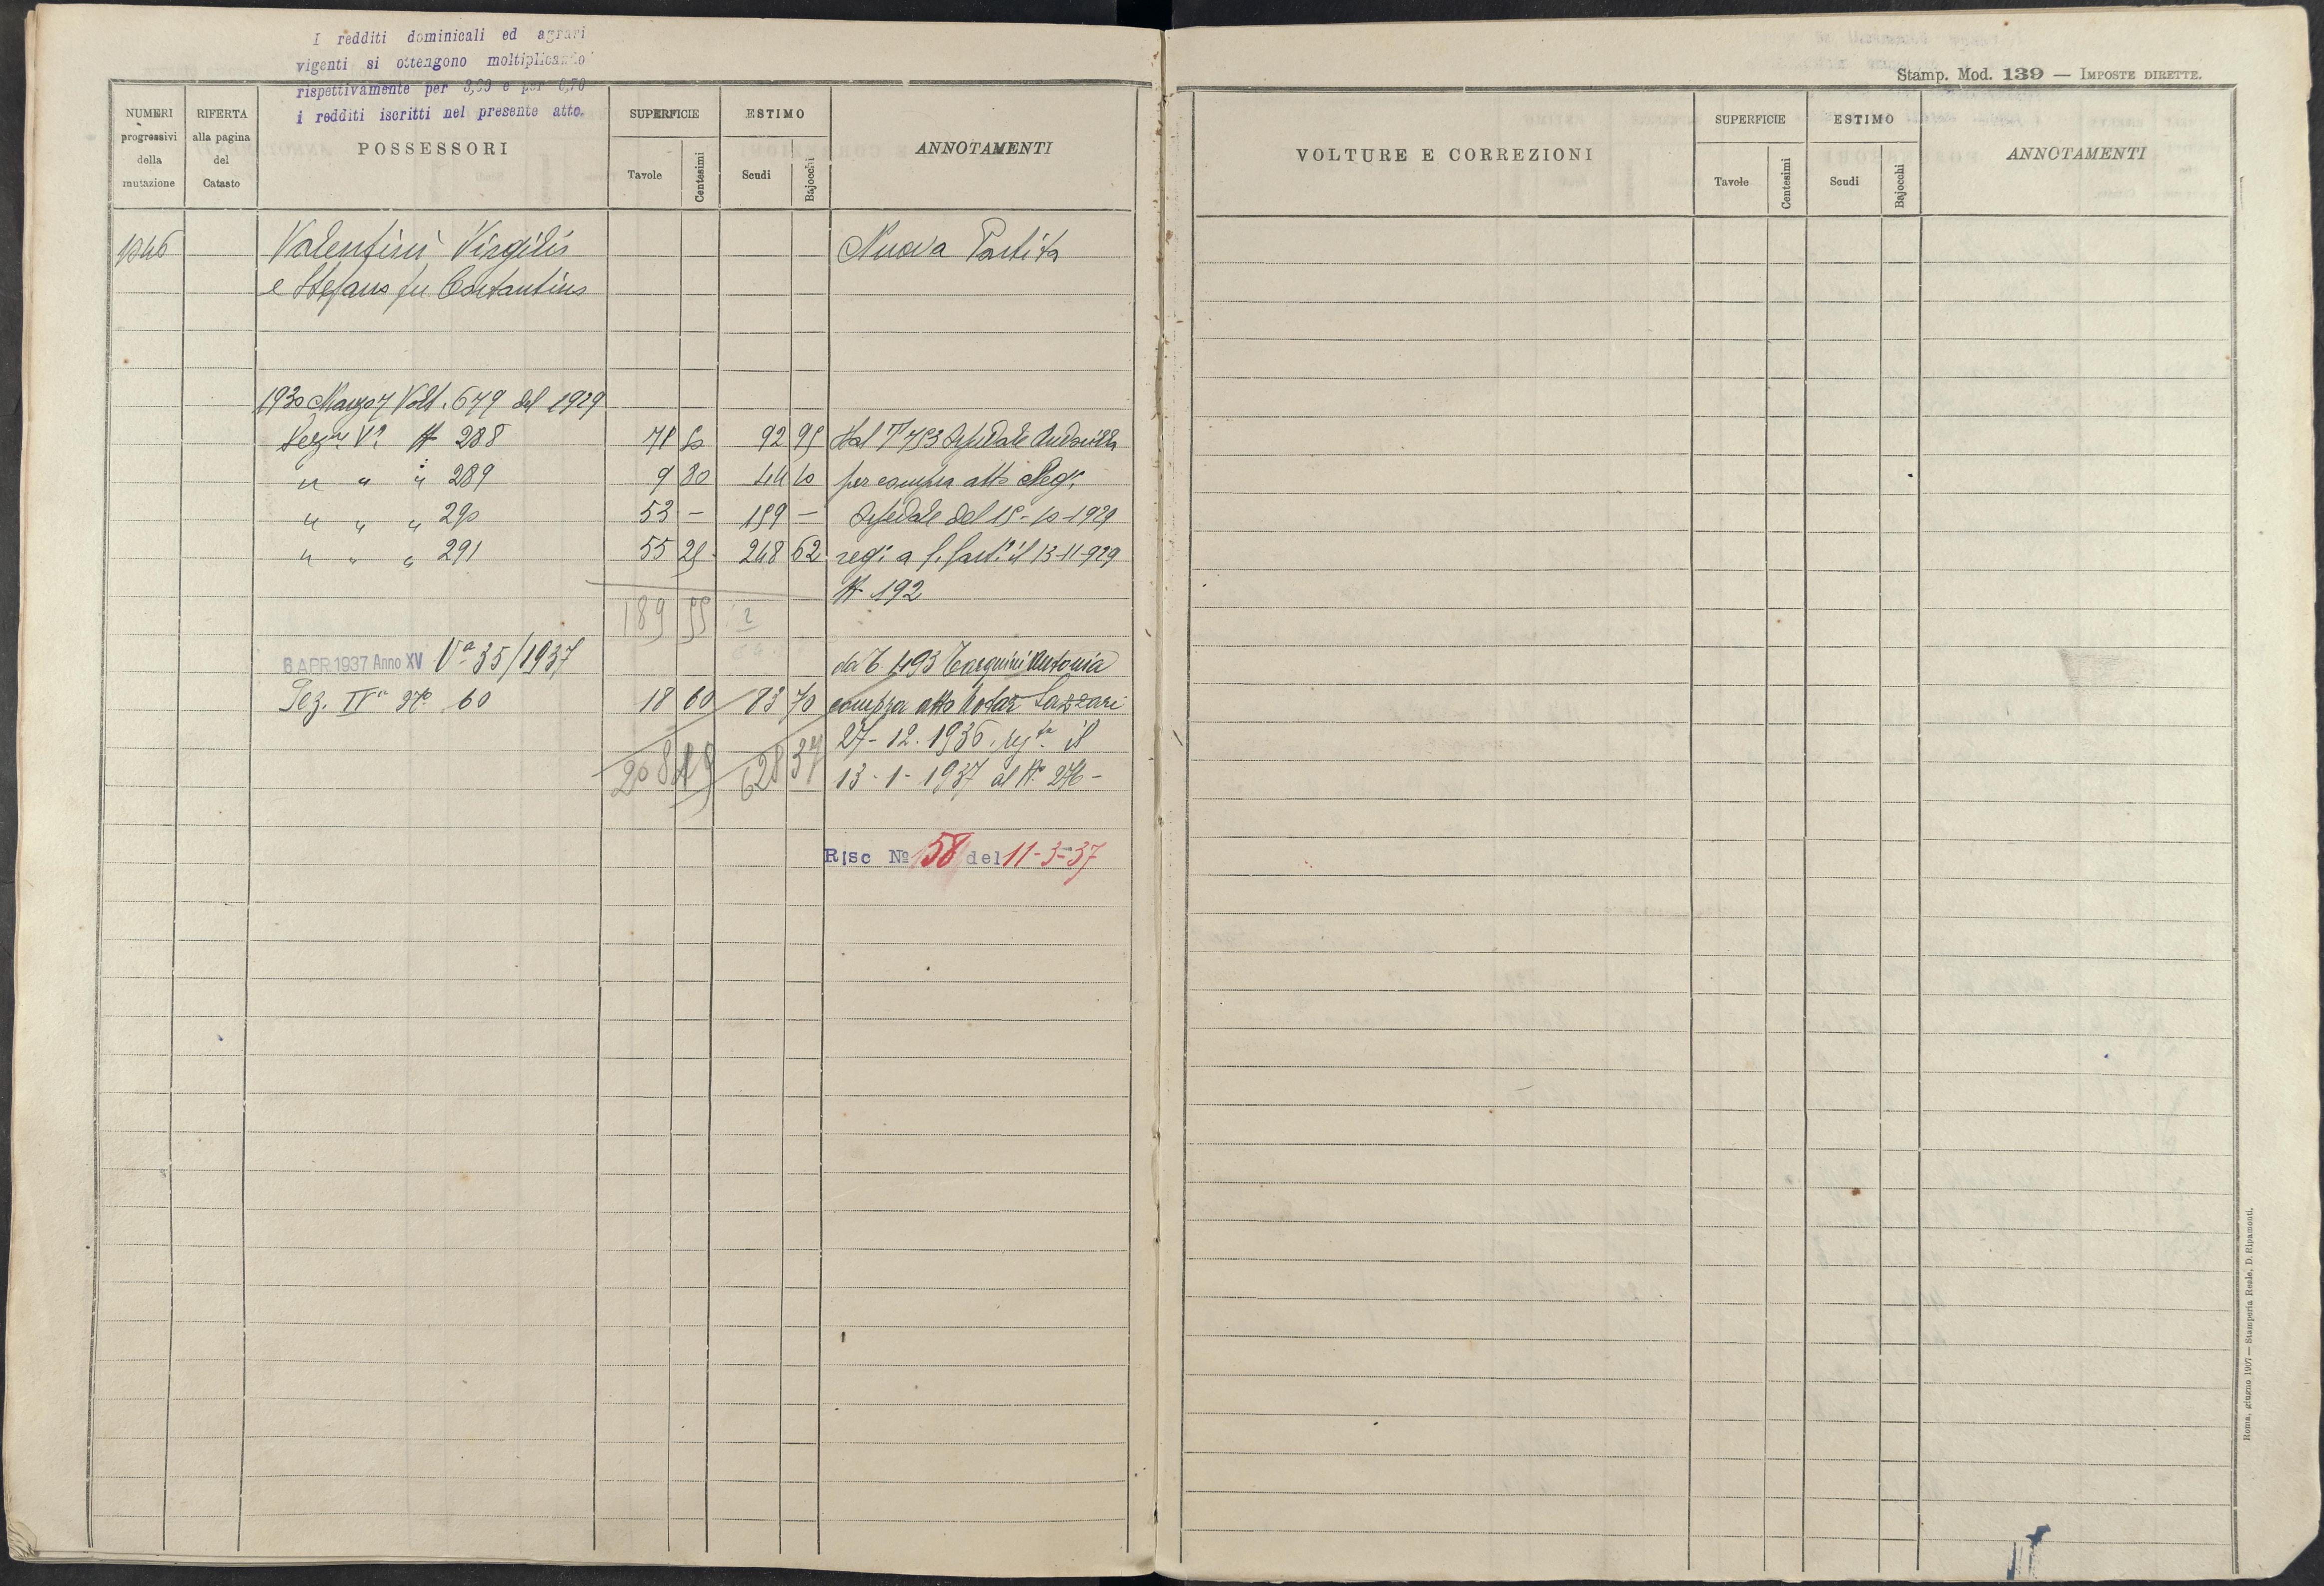 I redditi dominicali ed agrari
vigenti si ottengono moltiplicando
rispettivamente per 3,60 e per 0,70
i redditi iscritti nel presente atto.
NUMERI progressivi della mutazione
RIFERTA alla pagina del Catasto
POSSESSORI
SUPERFICIE
Tavole Centesimi
ESTIMO
Scudi Bajocchi
ANNOTAMENTI
1046 Valentini Virgilio Nuova Partita
e Stefano fu Costantino
1930 Marzo 7 Volt. 679 del 1929
Sez. V N 288 71 50 92 95
" " " 289 9 80 44 10 per compra atto Reg.
" " " 290 53 — 159 — del 15-10-1929
" " " 291 55 25 248 62 reg. a il 13-11-929
189 55 N 192
6 APR. 1937 Anno XV Va 35/1937 da T. 493 Tarquini Antonia
Sez. IVa No 60 18 60 83 70 compra atto Notar Lazzari
27-12-1936. regta il
208 628 37 13-1-1937 al No 276-
Risc No 58 del 11-3-37
Stamp. Mod. 139 — IMPOSTE DIRETTE.
VOLTURE E CORREZIONI
SUPERFICIE
Tavole Centesimi
ESTIMO
Scudi Bajocchi
ANNOTAMENTI
Roma, giugno 1907 — Stamperia Reale, D. Ripamonti.